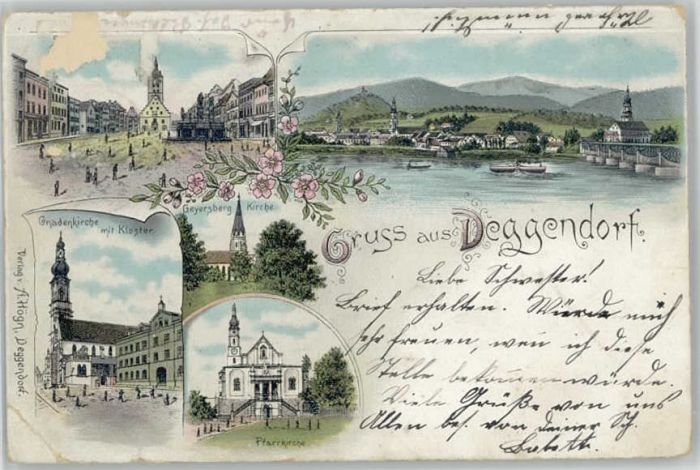 Geyersberg Kirche
Gnadenkirche
mit Kloster.
Gruss aus Deggendorf.
Liebe Schwester!
Brief erhalten. Würde mich
sehr freuen, wen ich diese
Stelle bekommen würde.
Viele Grüße von uns
Allen bes. von deiner Sch.
Babett.
Pfarrkirche
Verlag v. A. Högn, Deggendorf.